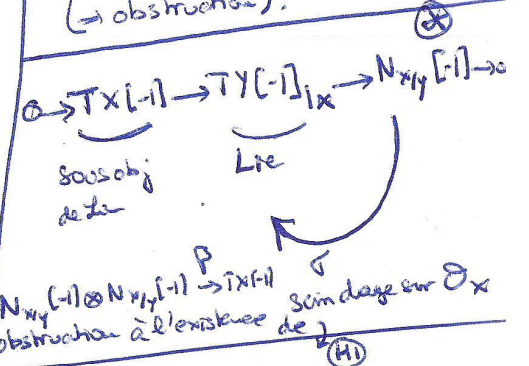 (→ obstruction).
⊗
0 → TX[-1] → TY[-1]|x → N x/y [-1] → 0
sous obj Lie
de Lie
σ
N x/y [-1] ⊗ N x/y [-1] →β TX[-1] scindage sur O x
obstruction à l'existence de
(H1)